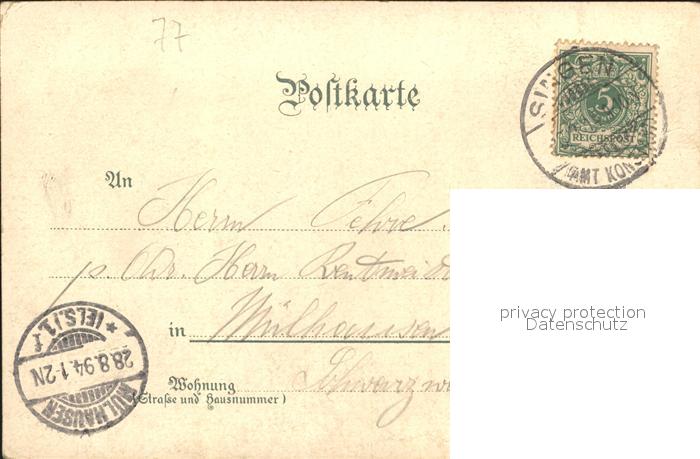 77
Postkarte
SINGEN
AMT KONS
5
REICHSPOST
An
Herrn Fehre
p. Adr. Herrn
in Mülhausen
Wohnung
(Straße und Hausnummer)
MÜLHAUSEN
28.8.94.1-2N
* (ELS.) 1. f
privacy protection
Datenschutz